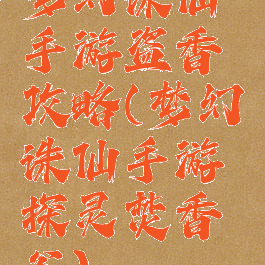 梦幻诛仙
手游盗香
攻略(梦幻
诛仙手游
探灵焚香